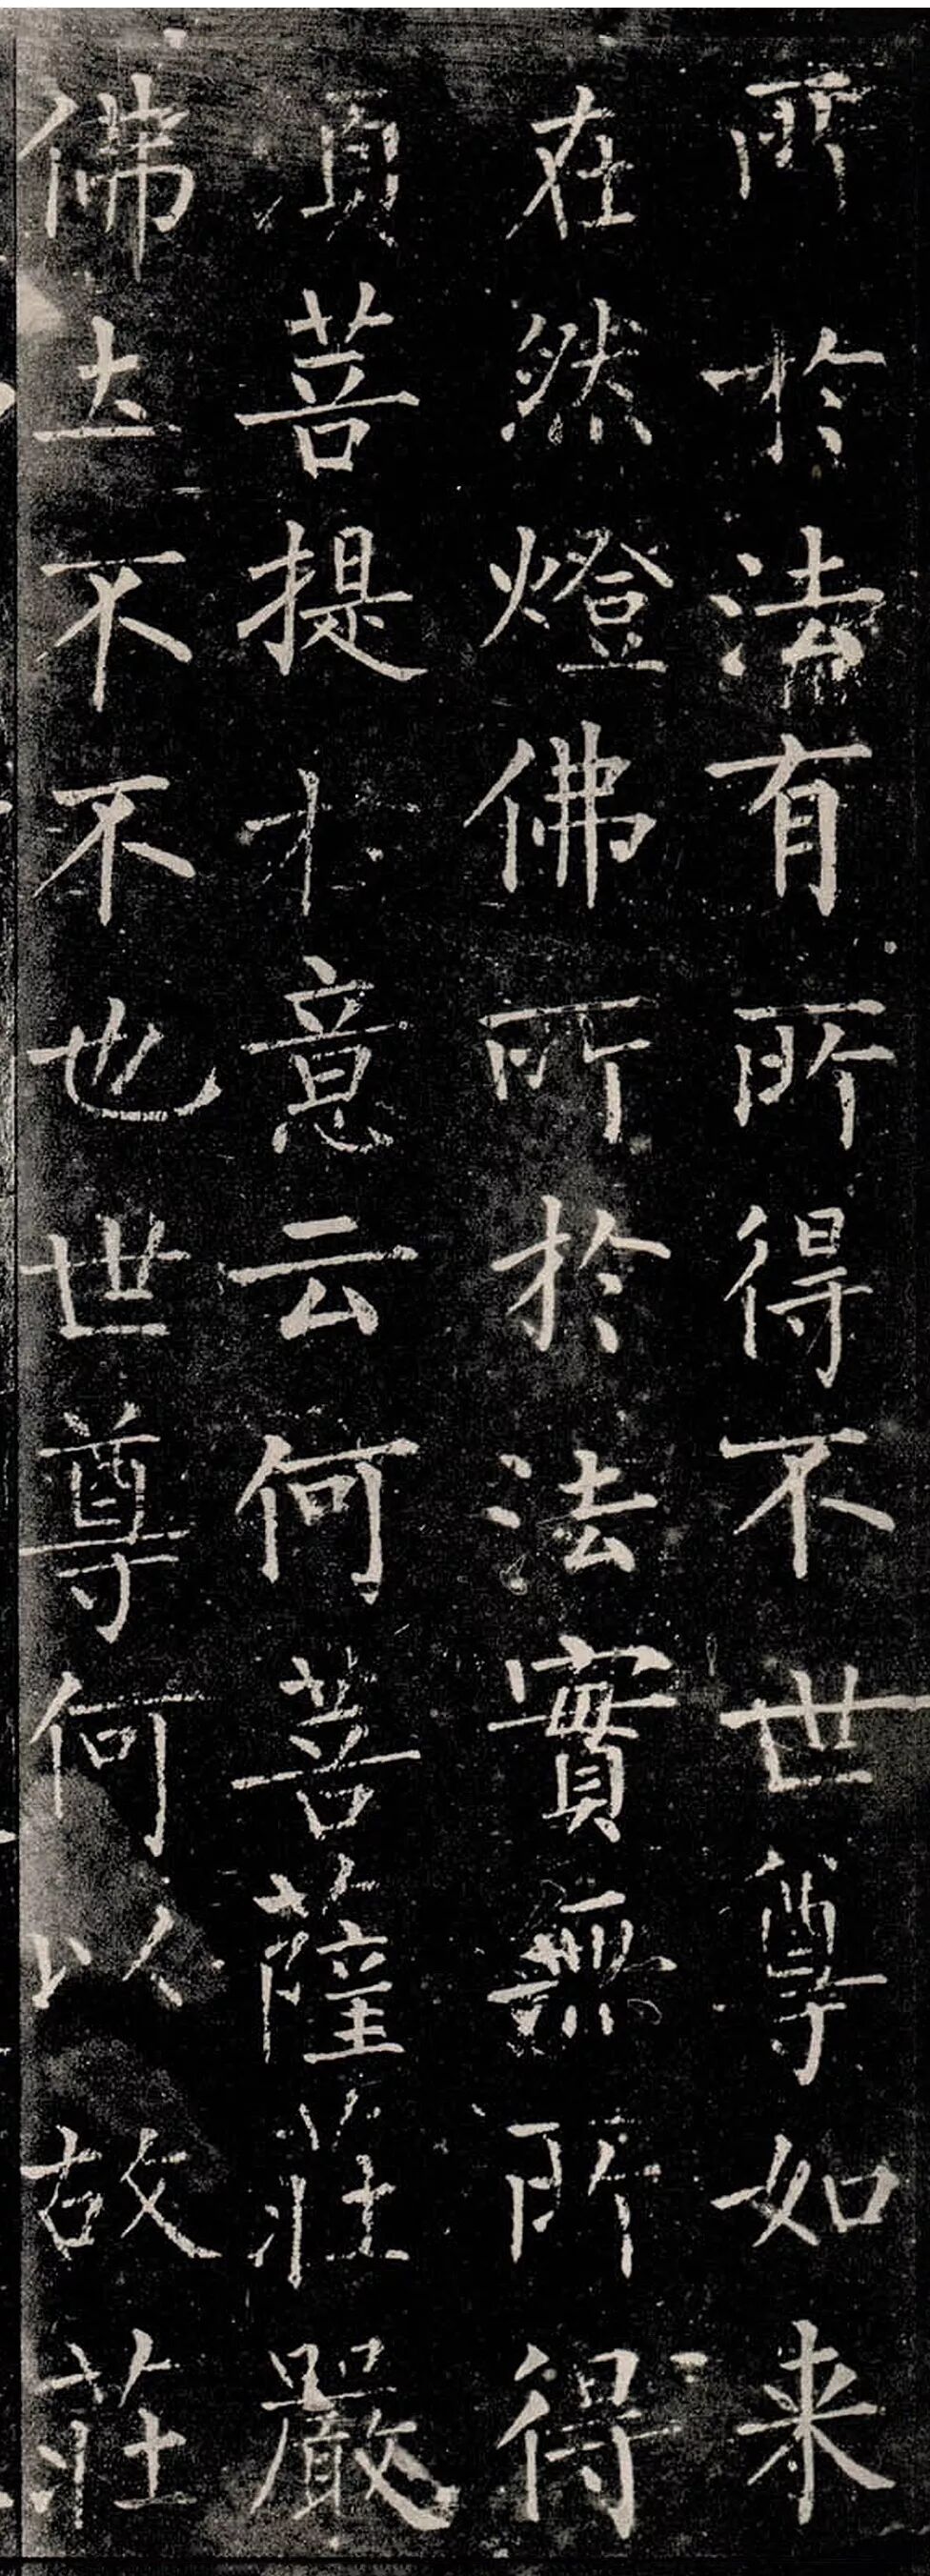 所於法有所得不世尊如来
在然燈佛所於法實無所得
須菩提於意云何菩薩莊嚴
佛圡不不也世尊何以故莊